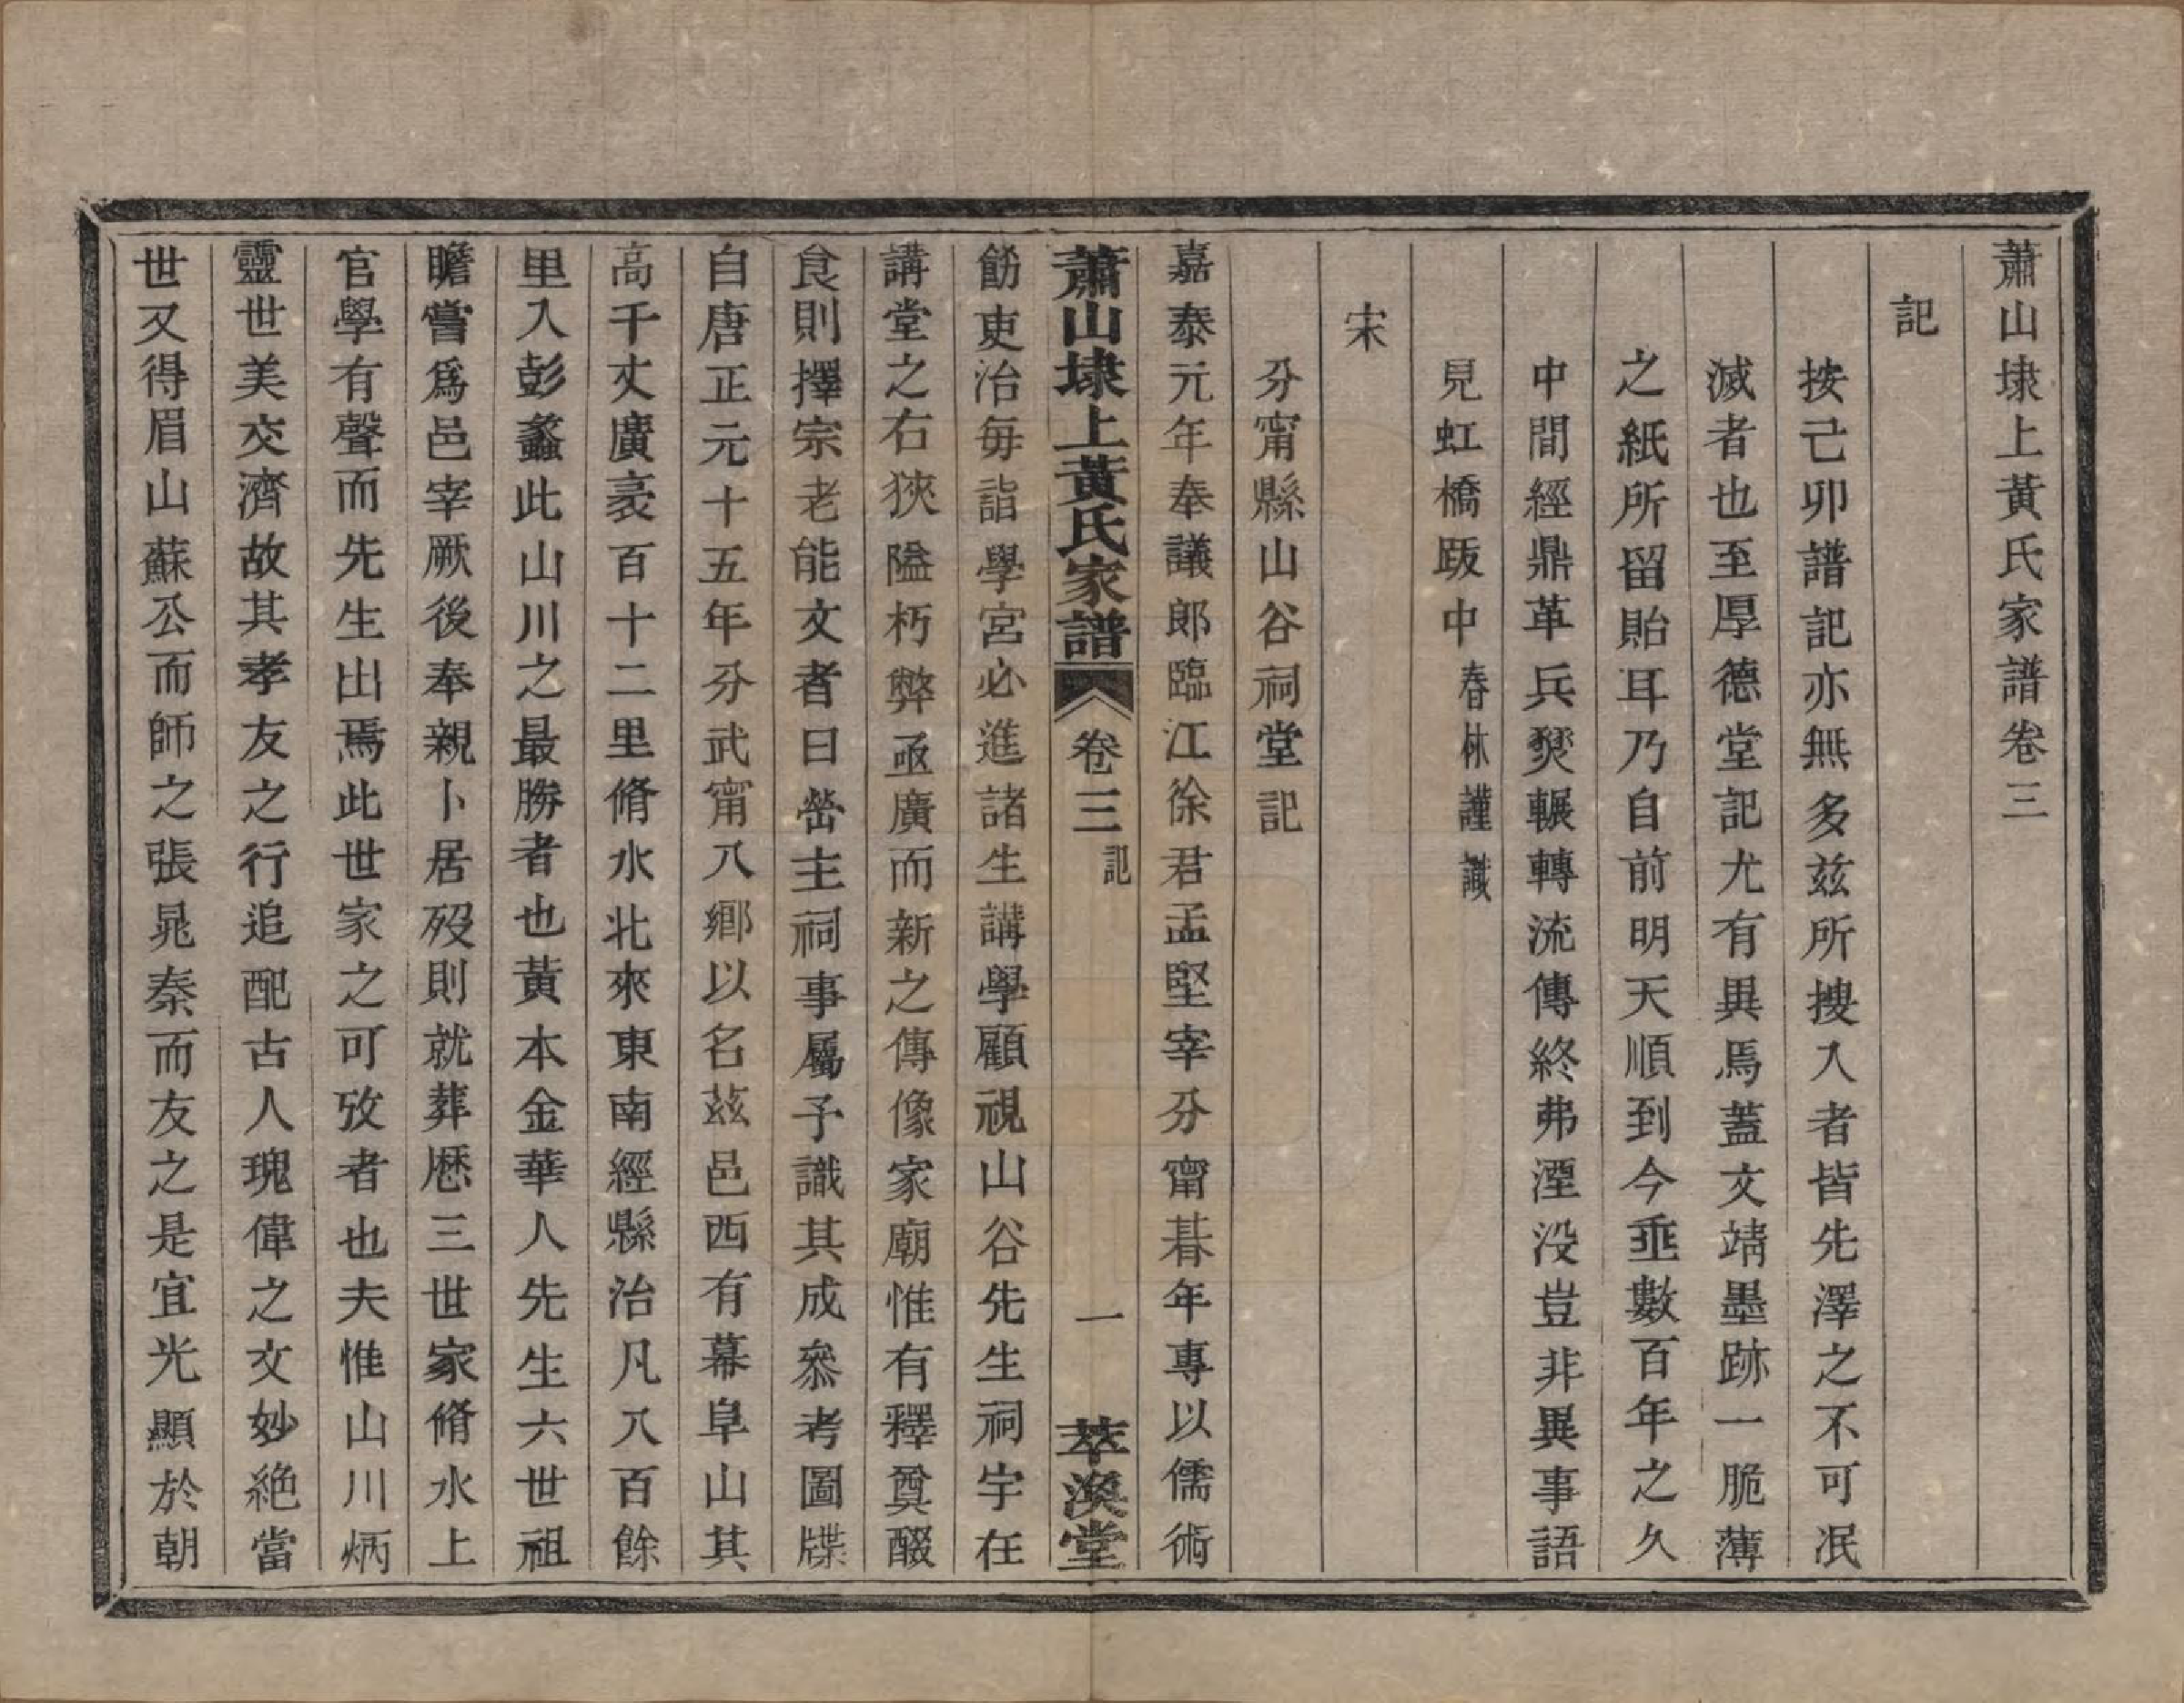 蕭山埭上黃氏家譜卷三
記
按己卯譜記亦無多玆所搜入者皆先澤之不可泯
滅者也至厚德堂記尤有異焉蓋文靖墨跡一脆薄
之紙所留貽耳乃自前明天順到今垂數百年之久
中間經鼎革兵燹輾轉流傳終弗湮没豈非異事語
見虹橋跋中春林謹識
宋
分甯縣山谷祠堂記
嘉泰元年奉議郎臨江徐君孟堅宰分甯朞年專以儒術
蕭山埭上黃氏家譜 卷三 記 一 萃渙堂
飭吏治每詣學宮必進諸生講學顧視山谷先生祠宇在
講堂之右狹隘朽弊亟廣而新之傳像家廟惟有釋奠醊
食則擇宗老能文者曰嶅主祠事屬予識其成叅考圖牒
自唐正元十五年分武甯八鄉以名茲邑西有幕阜山其
高千丈廣袤百十二里脩水北來東南經縣治凡八百餘
里入彭蠡此山川之最勝者也黃本金華人先生六世祖
瞻嘗爲邑宰厥後奉親卜居歿則就葬厯三世家脩水上
官學有聲而先生出焉此世家之可攷者也夫惟山川炳
靈世美交濟故其孝友之行追配古人瑰偉之文妙絕當
世又得眉山蘇公而師之張晁秦而友之是宜光顯於朝